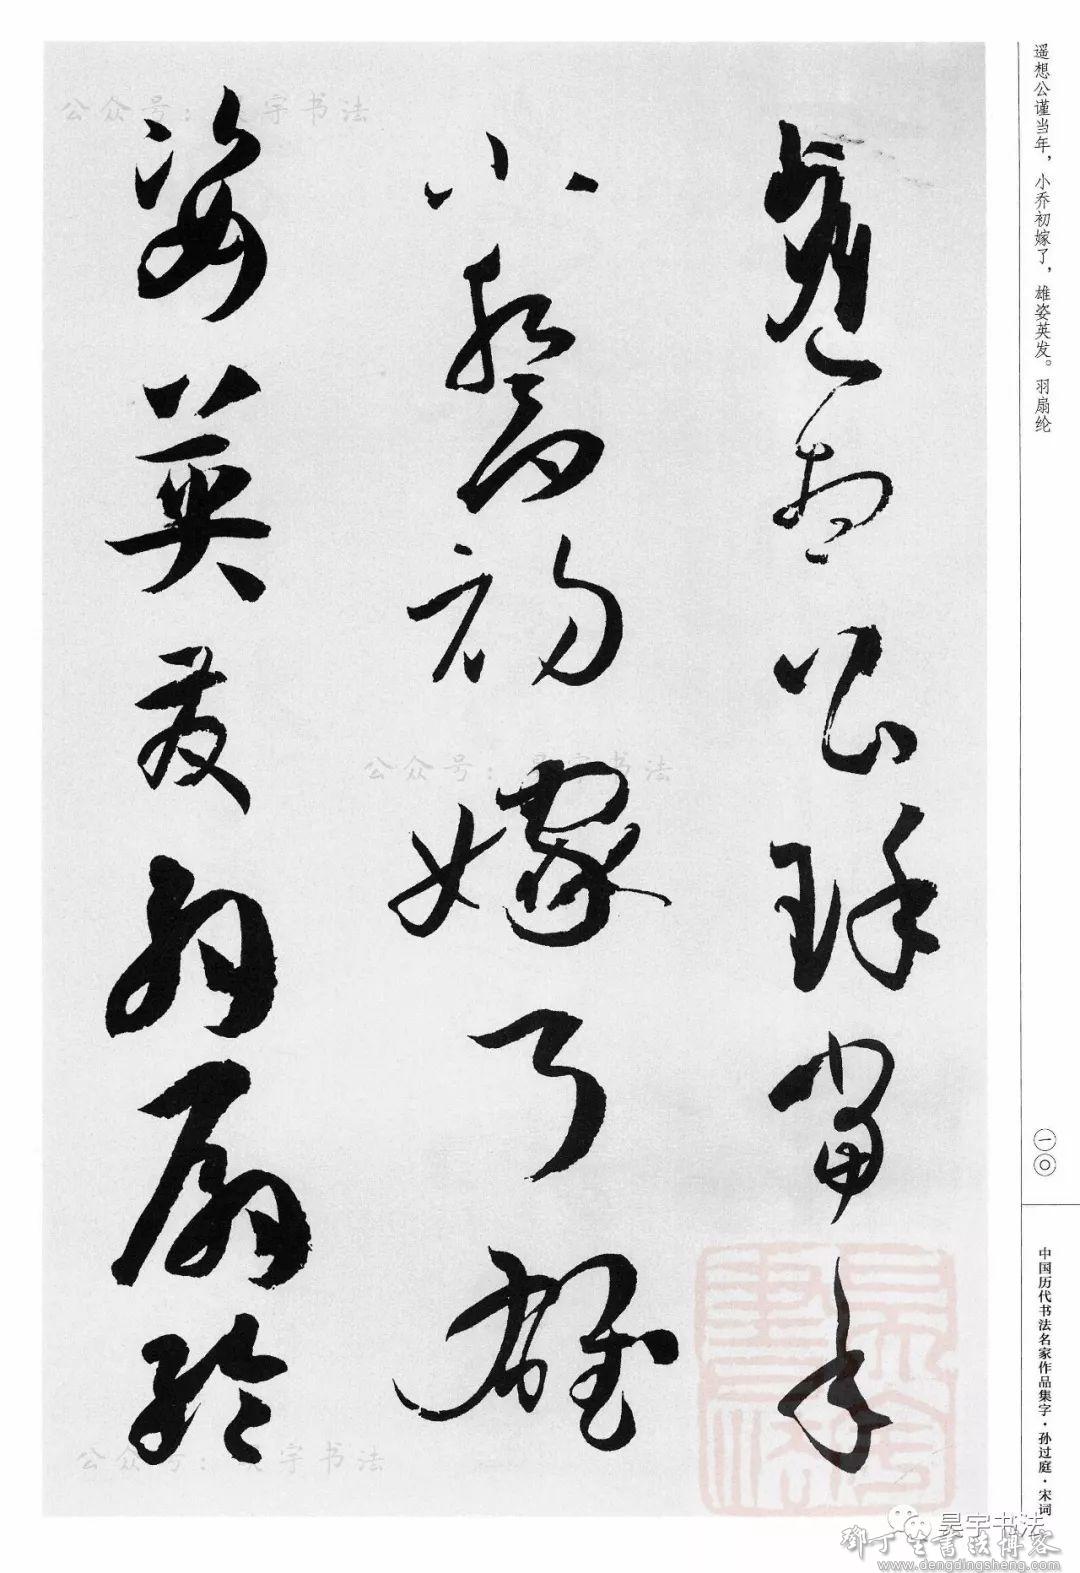 遥想公谨当年，小乔初嫁了，雄姿英发。羽扇纶
遥想公瑾当年
小乔初嫁了雄
姿英发羽扇纶
一〇
中国历代书法名家作品集字·孙过庭·宋词
公众号：昊宇书法
公众号：昊宇书法
公众号：昊宇书法
昊宇书法
邓丁生书法博客
www.dengdingsheng.com